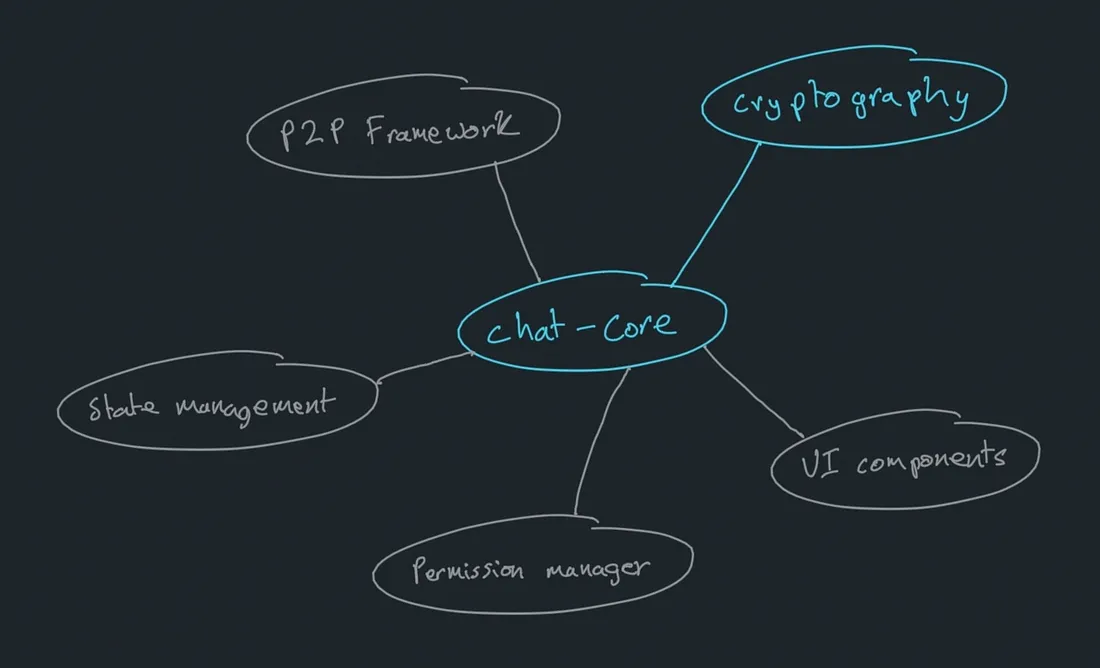 P2P Framework
cryptography
chat-core
State management
UI components
Permission manager